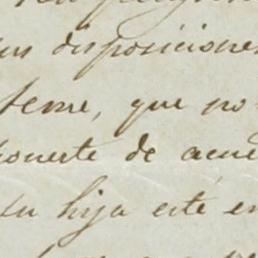 disposiciones
teme, que no
ponerte de acue
su hija esté en